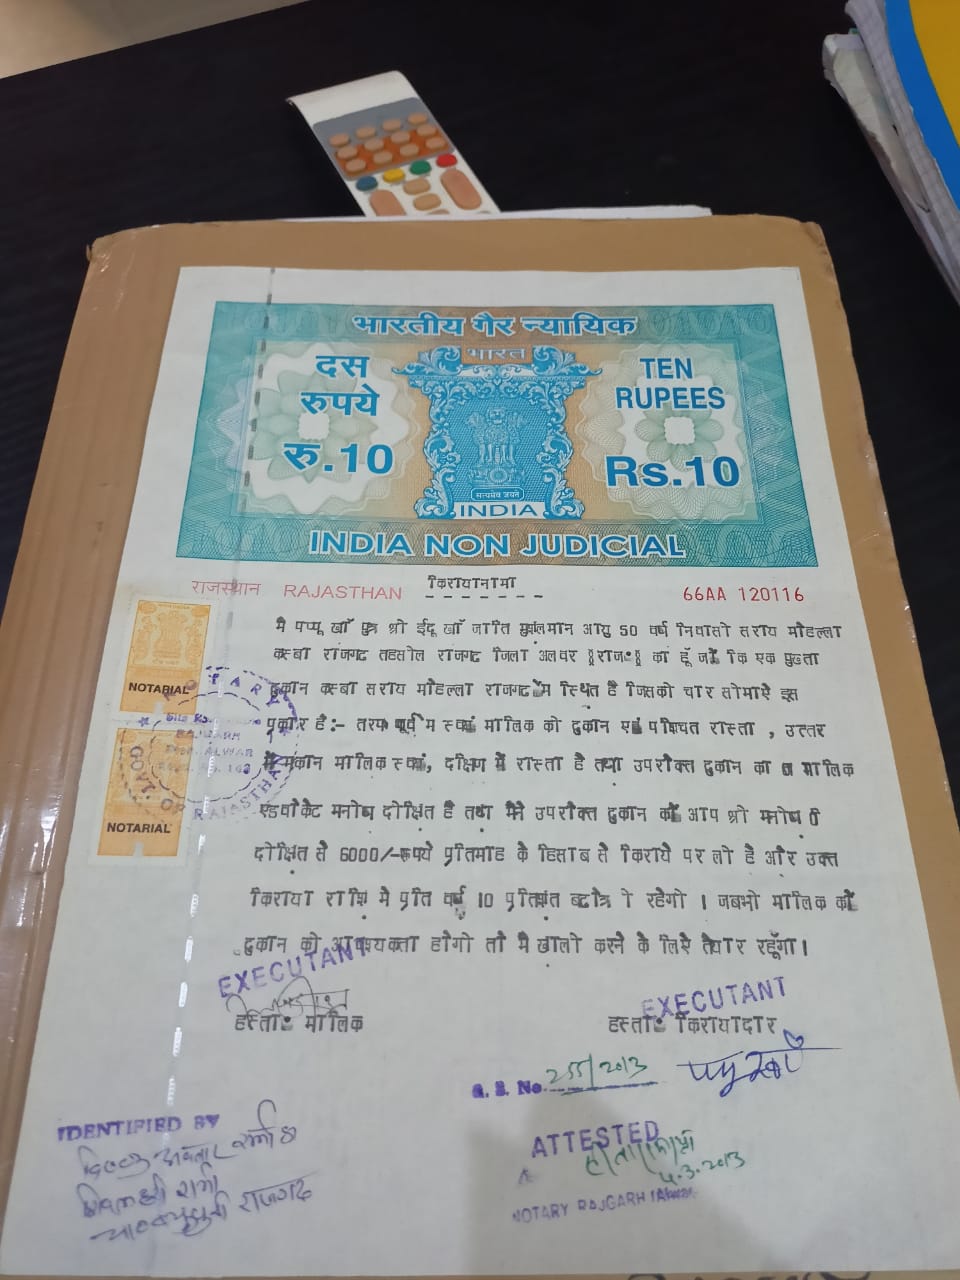 भारतीय गैर न्यायिक
भारत
दस
रुपये
रु.10
TEN
RUPEES
Rs.10
सत्यमेव जयते
INDIA
INDIA NON JUDICIAL
राजस्थान RAJASTHAN
किरायानामा
66AA 120116
मै पप्पू खाँ पुत्र श्री ईदू खाँ जाति मुसलमान आयु 50 वर्ष निवासी सराय मोहल्ला
कस्बा राजगढ तहसील राजगढ जिला अलवर राज० का हूँ जो कि एक पुख्ता
दुकान कस्बा सराय मोहल्ला राजगढ मे स्थित है जिसकी चार सीमाऐ इस
प्रकार है:- तरफ पूर्व मे स्वयं मालिक की दुकान एवं पश्चित रास्ता , उत्तर
में मकान मालिक स्वयं, दक्षिण में रास्ता है तथा उपरोक्त दुकान का मालिक
एडवोकेट मनोज दीक्षित है तथा मैने उपरोक्त दुकान को आप श्री मनोज
दीक्षित से 6000/-रूपये प्रतिमाह के हिसाब से किराये पर ली है और उक्त
किराया राशि मे प्रति वर्ष 10 प्रतिशत बढोत्री रहेगी । जबभी मालिक को
दुकान की आवश्यकता होगी तो मै खाली करने के लिऐ तैयार रहूँगा।
NOTARIAL
NOTARY
NOTARIAL
GOVT. OF RAJASTHAN
EXECUTANT
हस्ता० मालिक
EXECUTANT
हस्ता० किरायादार
पप्पू खाँ
No. 255/2013
IDENTIFIED BY
ATTESTED
4.3.2013
NOTARY RAJGARH